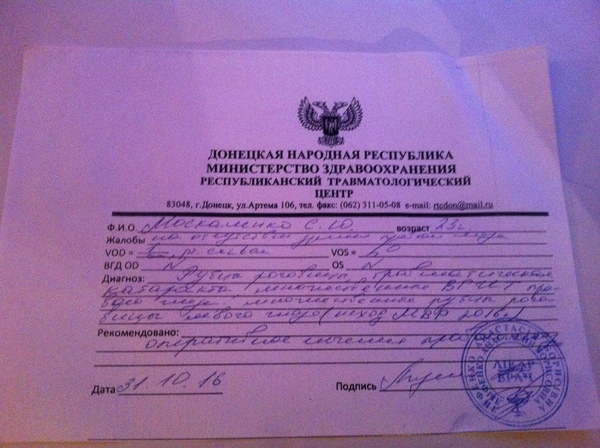 ДОНЕЦКАЯ НАРОДНАЯ РЕСПУБЛИКА
МИНИСТЕРСТВО ЗДРАВООХРАНЕНИЯ
РЕСПУБЛИКАНСКИЙ ТРАВМАТОЛОГИЧЕСКИЙ
ЦЕНТР
83048, г.Донецк, ул.Артема 106, тел. факс: (062) 311-05-08 e-mail: rtcdon@mail.ru
Ф.И.О. Москаленко С.Ю. возраст 23г
Жалобы на отсутствие зрения глаза
VOD = VOS =
ВГД OD N OS N
Диагноз: Рубцы роговицы, травматическая
катаракта, множественные
глаза, множественные рубцы рого
вицы левого глаза (исход МВР 2016г)
Рекомендовано:
оперативное лечение
Дата 31.10.16 Подпись
ВРАЧ